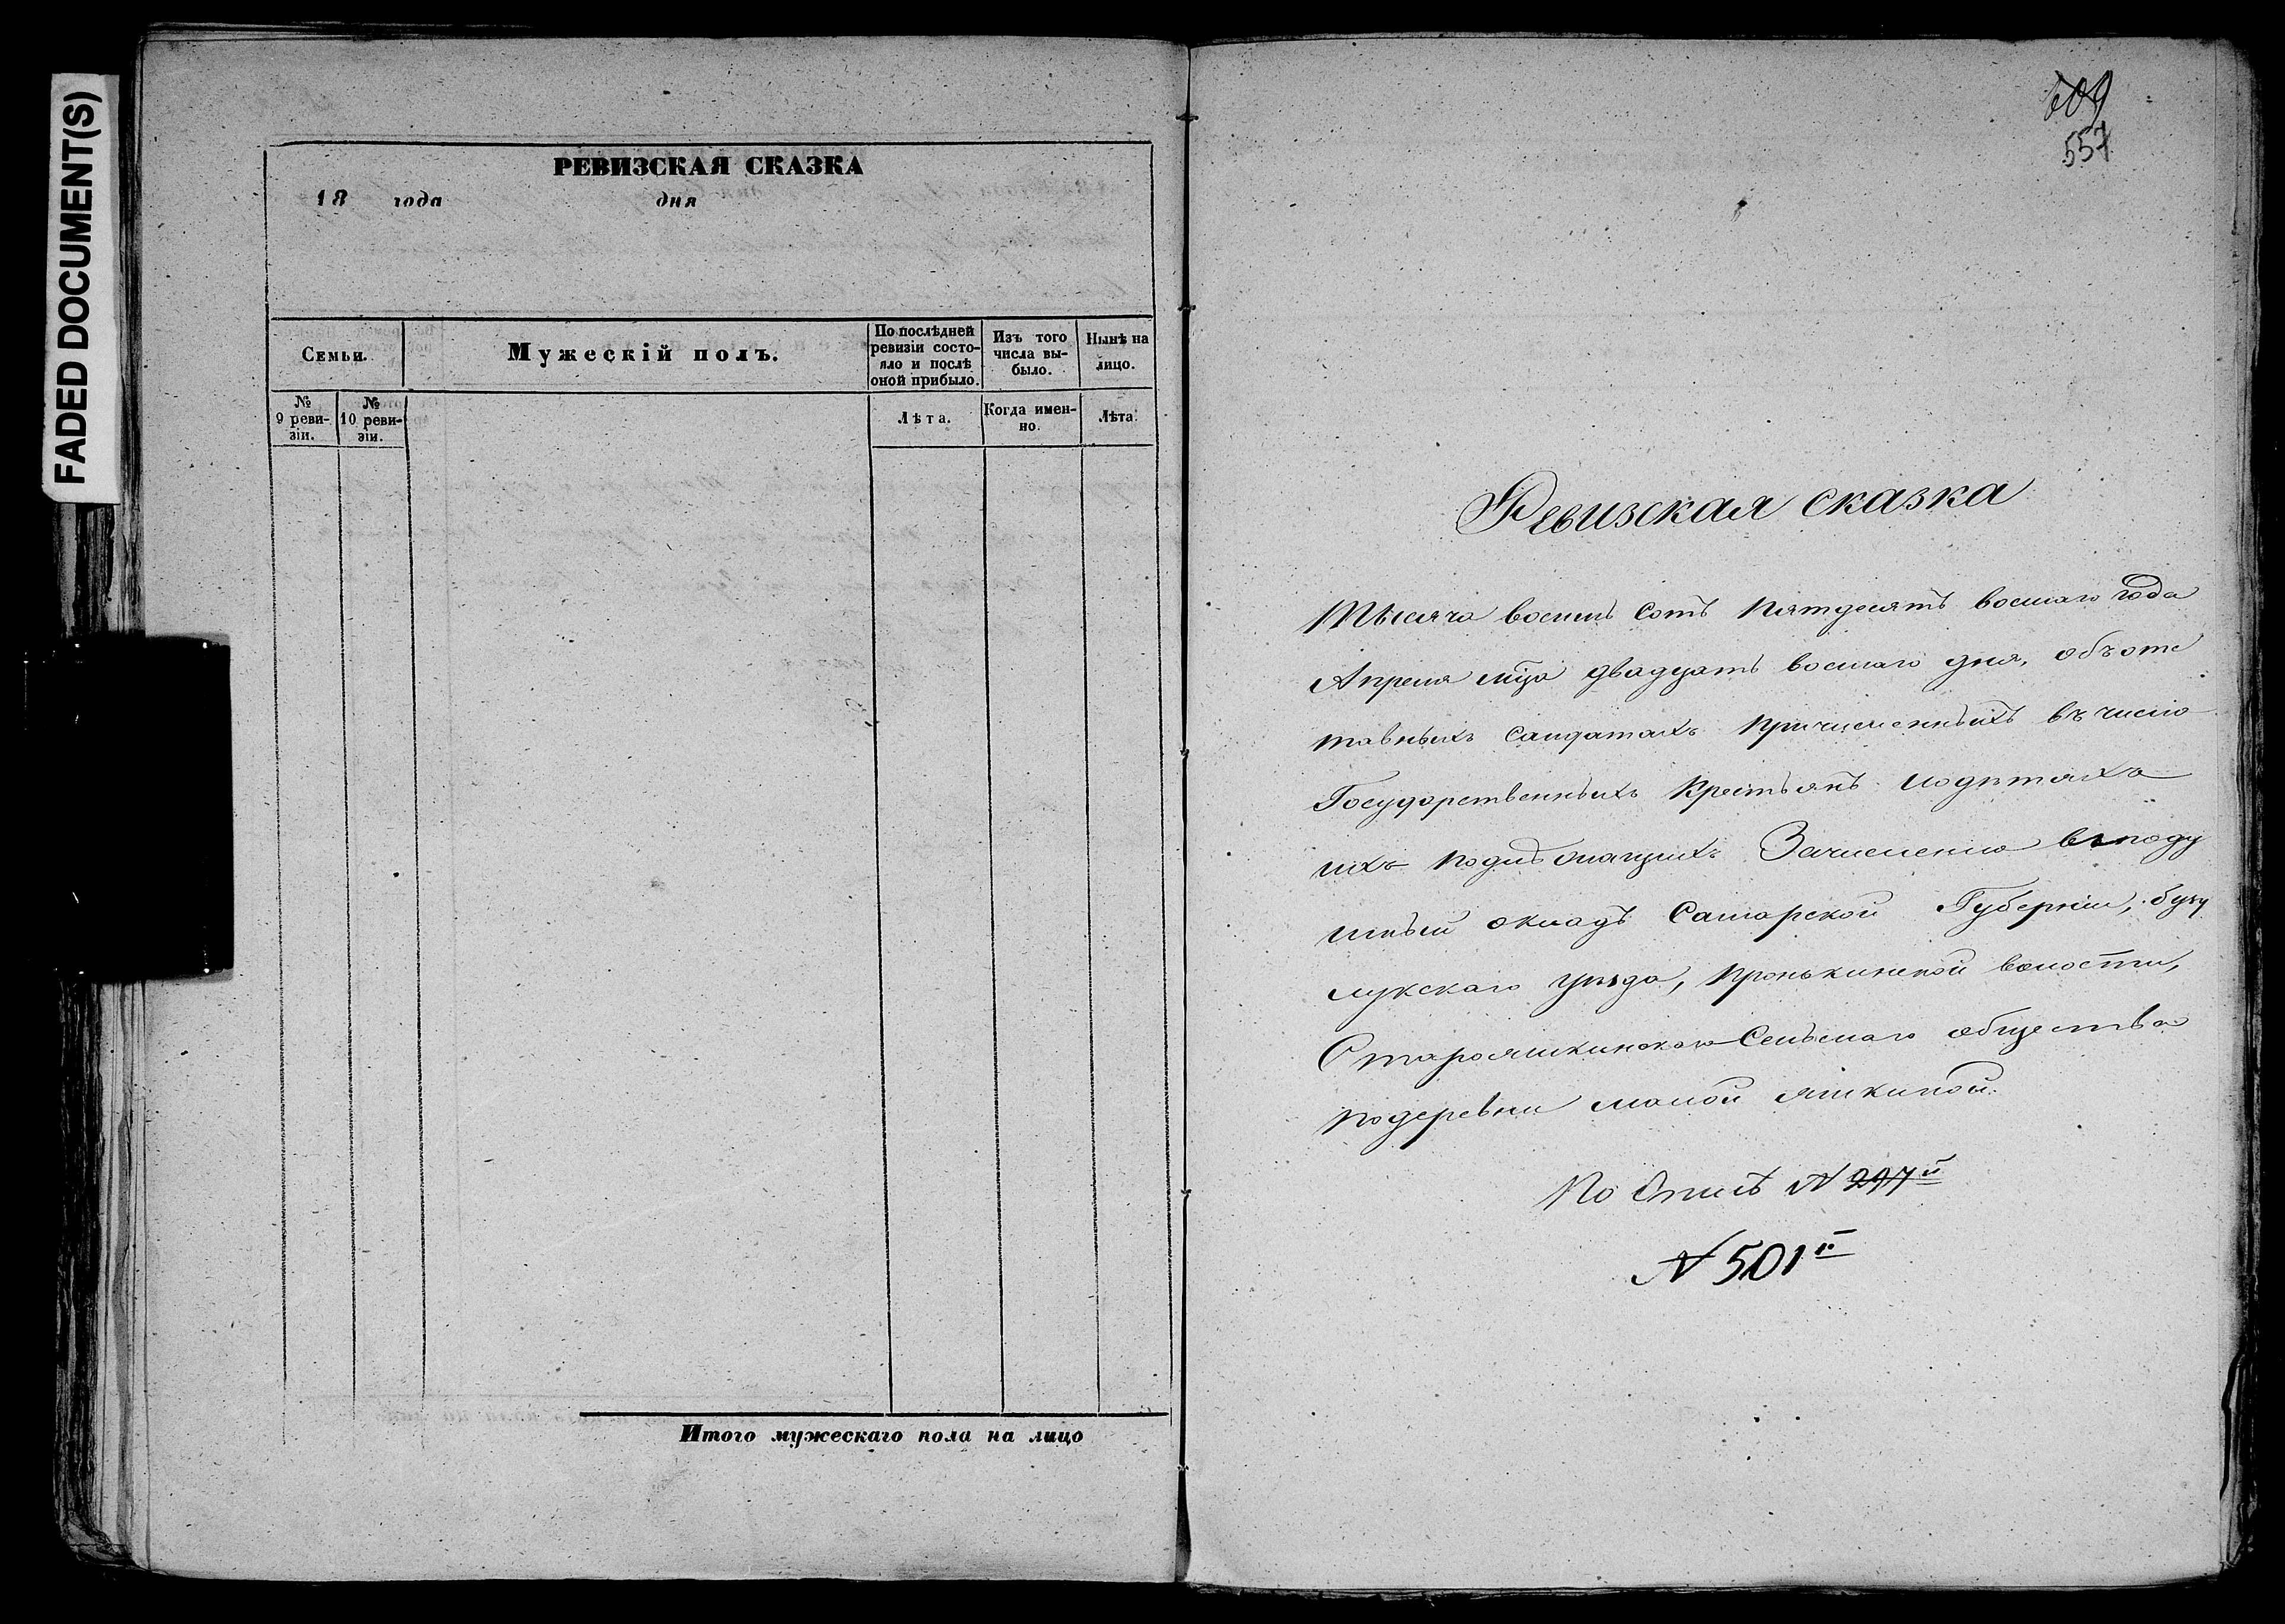 FADED DOCUMENT(S)
РЕВИЗСКАЯ СКАЗКА
18 года дня
Семьи.
Мужескій полъ.
По послѣдней ревизіи состо-яло и послѣ оной прибыло.
Изъ того числа вы-было.
Нынѣ на лицо.
№ 9 реви-зіи.
№ 10 реви-зіи.
Лѣта.
Когда имен-но.
Лѣта.
Итого мужескаго пола на лицо
609
557
Ревизская сказка
Тысяча восемь сотъ пятдесятъ восмаго года
Апреля мца двадцать восмаго дня, объ отс
тавныхъ салдатахъ причисленныхъ въ число
Государственныхъ Крестьянъ и о дѣтяхъ
ихъ подлѣжащихъ Зачислению въ поду
шный окладъ Самарской Губерніи, бузу
лукскаго уѣзда, пронькинской волости,
Старояшкинскаго Сельскаго общества
по деревни малой яшкиной.
По Описѣ № 297й
№ 501й